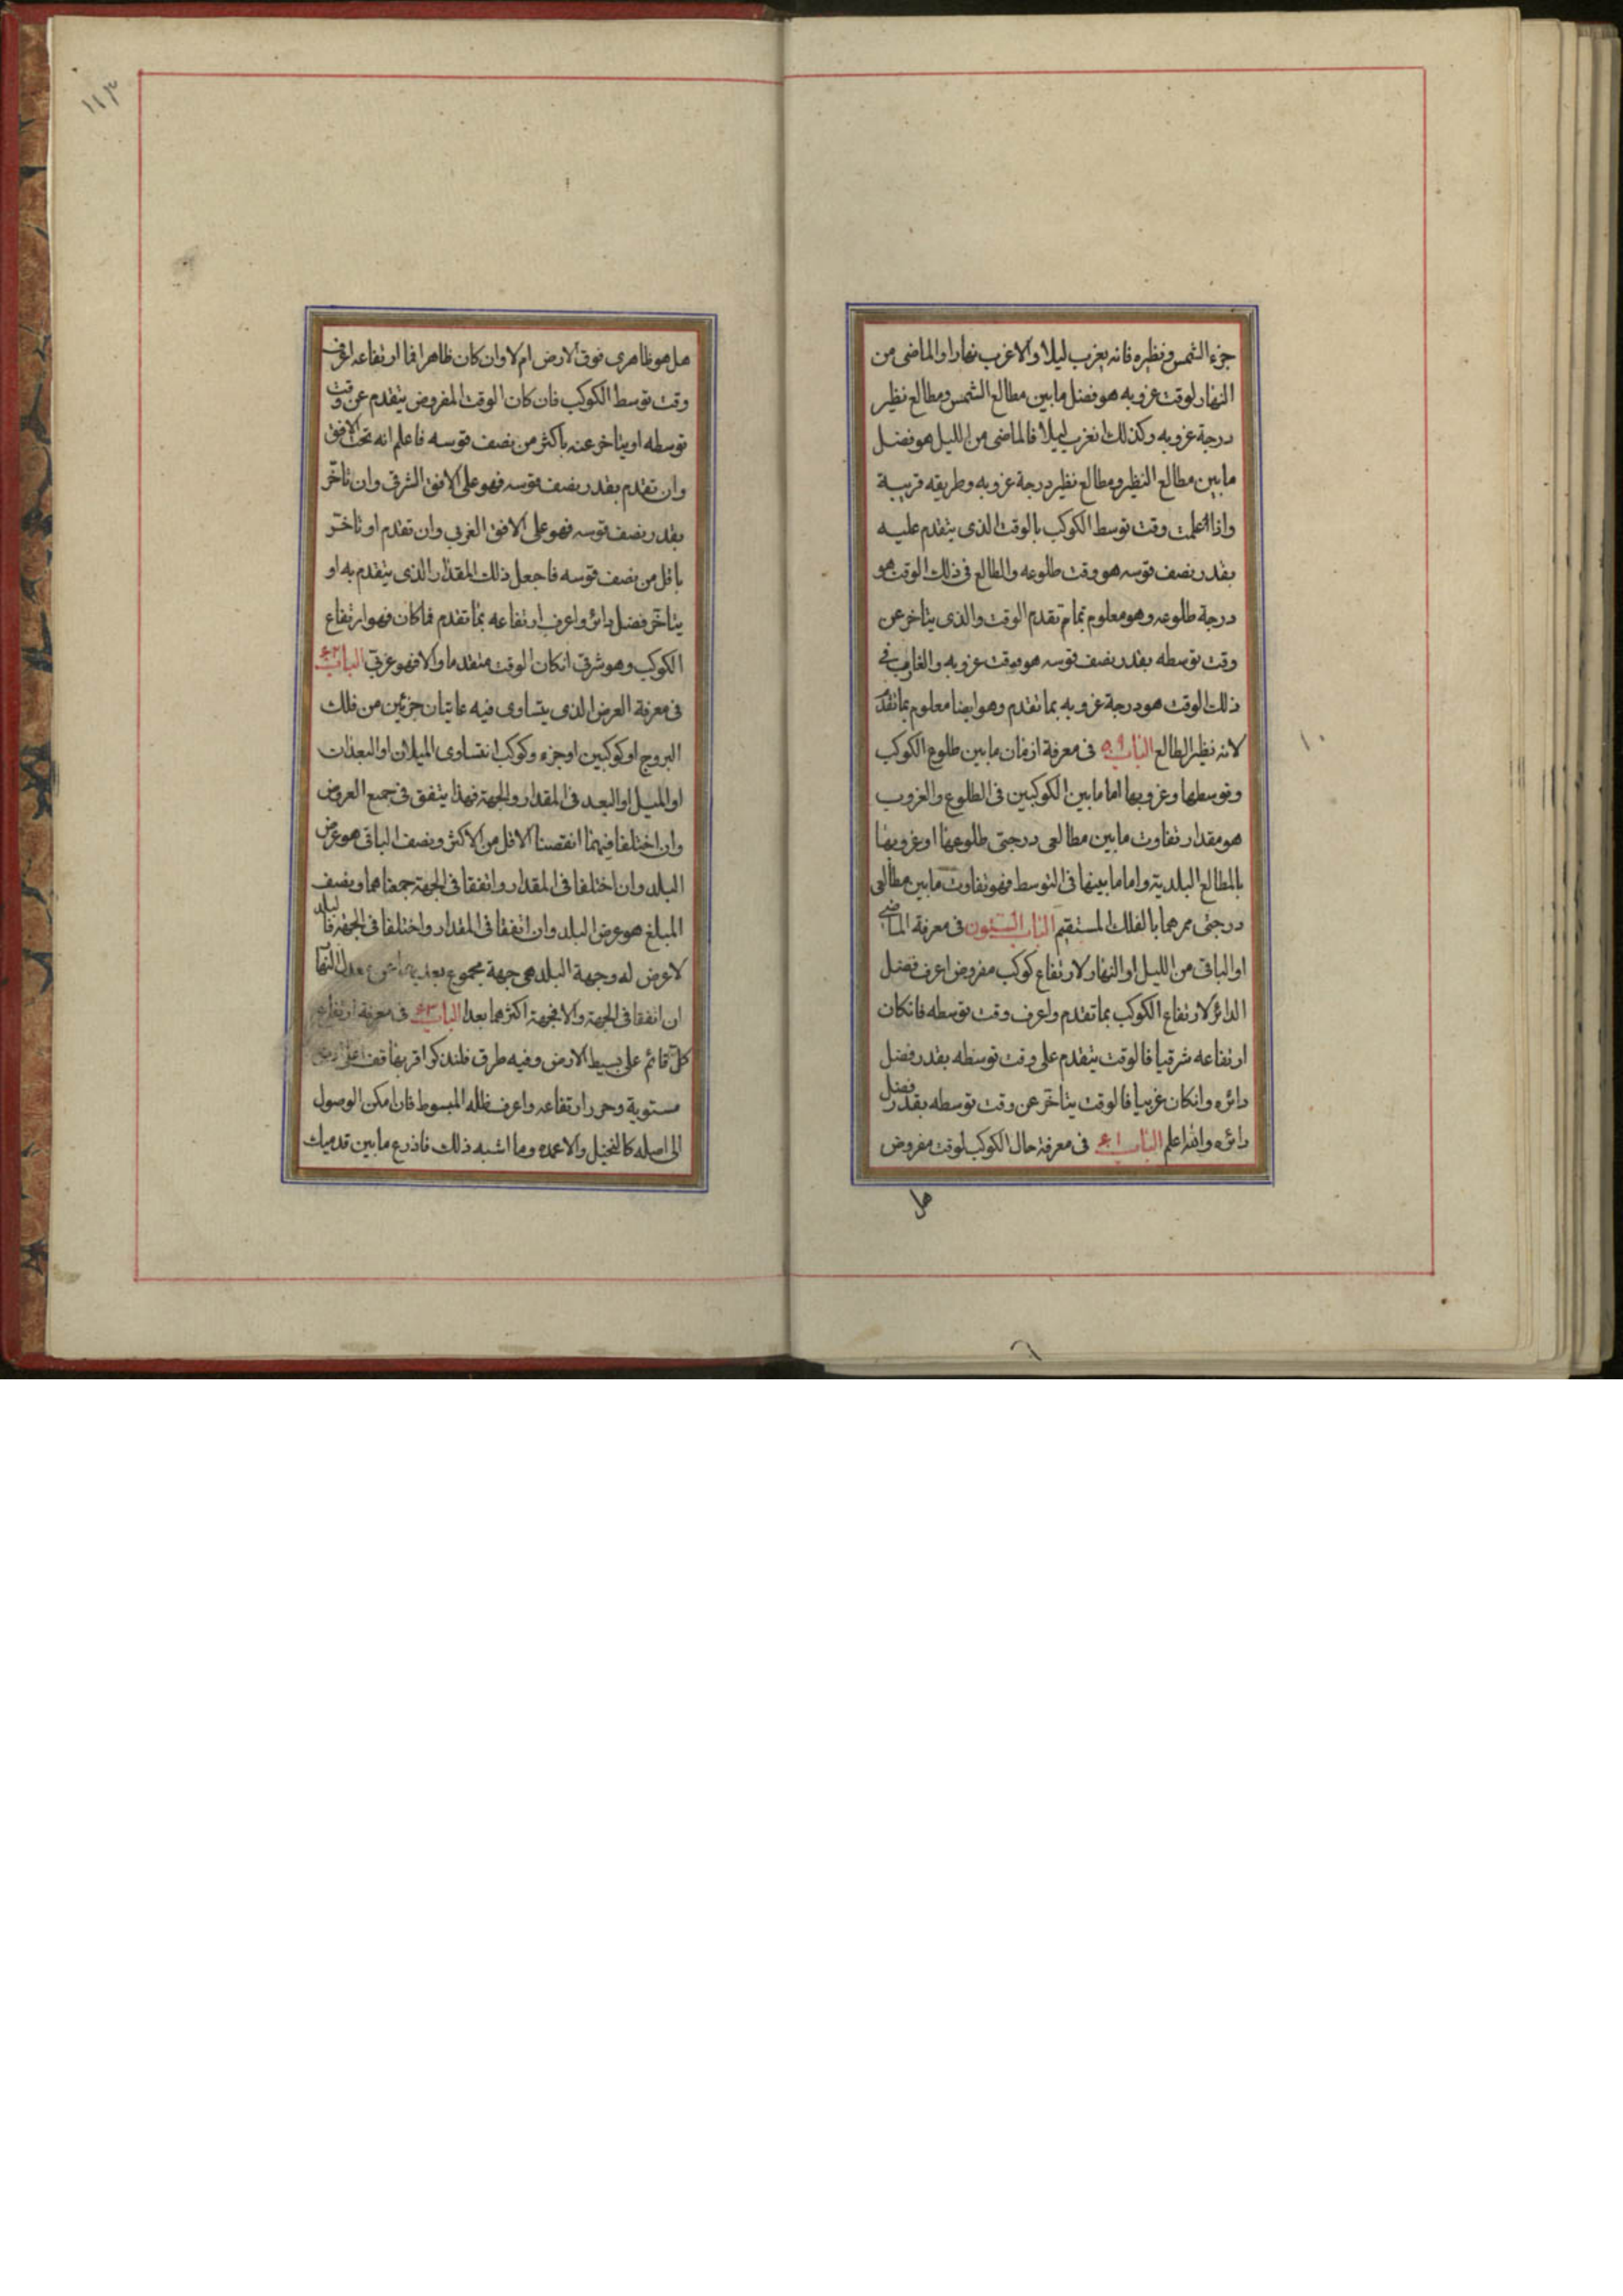 جزء الشمس ونظيره فانه يغرب ليلا والا غرب نهارا والماضى من
النهار لوقت غروبه هو فضل ما بين مطالع الشمس ومطالع نظير
درجة غروبه وكذلك ان غرب ليلا فالماضى من الليل هو فضل
ما بين مطالع النظير ومطالع نظير درجة غروبه وطريقه قريبة
واذا علمت وقت توسط الكوكب بالوقت الذى يتقدم عليه
بقدر نصف قوسه هو وقت طلوعه والطالع فى ذلك الوقت هو
درجة طلوعه وهو معلوم بما تقدم الوقت والذى يتاخر عن
وقت توسطه بقدر نصف قوسه هو وقت غروبه والغارب فى
ذلك الوقت هو درجة غروبه بما تقدم وهو ايضا معلوم بما تقدم
لانه نظير الطالع الباب ٥٩ فى معرفة ازمان ما بين طلوع الكوكب
وتوسطها وغروبها اما ما بين الكوكبين فى الطلوع والغروب
هو مقدار تفاوت ما بين مطالعى درجتى طلوعهما او غروبهما
بالمطالع البلدية واما ما بينهما فى التوسط فهو تفاوت ما بين مطالعى
درجتى ممرهما بالفلك المستقيم الباب الستون فى معرفة الماضى
او الباقى من الليل او النهار لارتفاع كوكب مفروض اعرف فضل
الدائر لارتفاع الكوكب بما تقدم واعرف وقت توسطه فانكان
ارتفاعه شرقيا فالوقت يتقدم على وقت توسطه بقدر فضل
دائره وانكان غربيا فالوقت يتاخر عن وقت توسطه بقدر فضل
دائره والله اعلم الباب ٦١ فى معرفة حال الكوكب لوقت مفروض
هل
١٠
١١٣
هل هو ظاهرى فوق الارض ام لا وان كان ظاهرا فما ارتفاعه اعرف
وقت توسط الكوكب فان كان الوقت المفروض يتقدم عن وقت
توسطه او يتاخر عنه باكثر من نصف قوسه فاعلم انه تحت الافق
وان تقدم بقدر نصف قوسه فهو على الافق الشرقى وان تاخر
بقدر نصف قوسه فهو على الافق الغربى وان تقدم او تاخر
باقل من نصف قوسه فاجعل ذلك المقدار الذى يتقدم به او
يتاخر فضل دائر واعرف ارتفاعه بما تقدم فما كان فهو ارتفاع
الكوكب وهو شرقى انكان الوقت متقدما والا فهو غربى الباب ٦٢
فى معرفة العرض الذى يتساوى فيه غايتان جزئين من فلك
البروج او كوكبين او جزء وكوكب ان تساوى الميلان او البعدان
او الميل او البعد فى المقدار والجهة فهذا يتفق فى جميع العروض
وان اختلفا فيهما انقصنا الاقل من الاكثر ونصف الباقى هو عرض
البلد وان اختلفا فى المقدار واتفقا فى الجهة جمعناهما ونصف
المبلغ هو عرض البلد وان اتفقا فى المقدار واختلفا فى الجهة فالبلد
لا عرض له وجهة البلد هى جهة مجموع بعديهما عن معدل النهار
ان اتفقا فى الجهة والا فجهة اكثرهما بعدا الباب ٦٣ فى معرفة ارتفاع
كل قائم على بسيط الارض وفيه طرق فلنذكر اقربها قف على ارض
مستوية وحرر ارتفاعه واعرف ظله المبسوط فان امكن الوصول
الى اصله كالنخيل والاعمده وما اشبه ذلك فاذرع ما بين قدميك